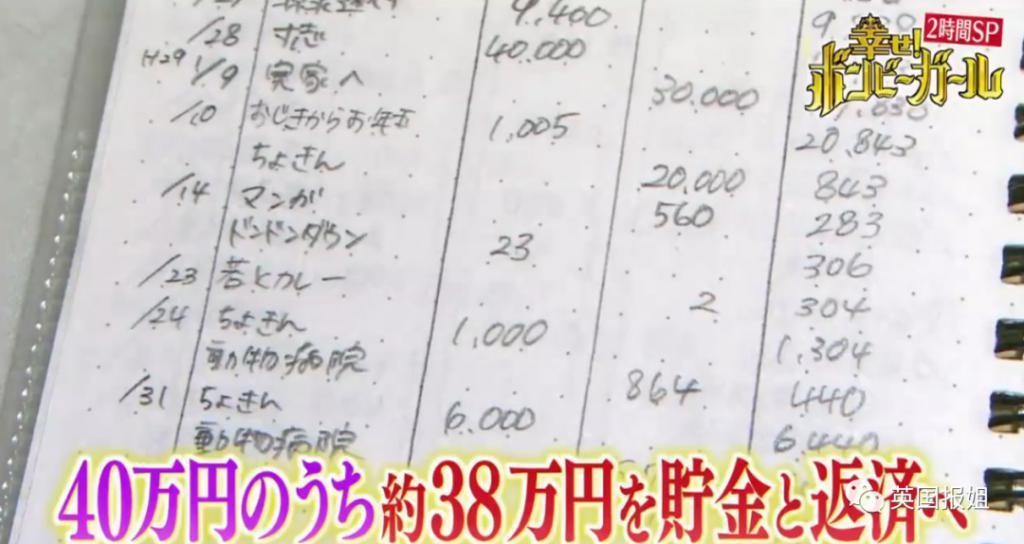 幸せ!
ボンビーガール
2時間SP
9,400
/28 すぎ 40,000
H29 1/9 実家へ 30,000
/10 おじきからお年玉 1,005 20,843
ちょきん 20,000 843
/14 マンガ 560 283
ドンドンダウン 23 306
/23 若とカレー 2 304
/24 ちょきん 1,000 1,304
動物病院 864 440
/31 ちょきん 6,000 6,440
動物病院
40万円のうち約38万円を貯金と返済へ
英国报姐